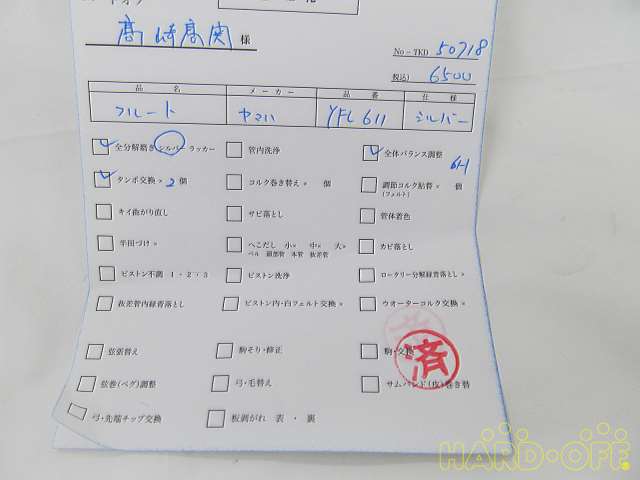 様
No-TKD 50718
(税込) 6500
品 名 メーカー 品 番 仕 様
フルート ヤマハ YFL 611 シルバー
全分解磨き シルバー ラッカー 管内洗浄 全体バランス調整
タンポ交換× 2 個 コルク巻き替え× 個 調節コルク貼替× 個
(フェルト)
キイ曲がり直し サビ落とし 管体着色
半田づけ× へこだし 小× 中× 大× カビ落とし
ベル 細部管 本管 抜差管
ピストン不調 1・2・3 ピストン洗浄 ロータリー分解緑青落とし×
抜差管内緑青落とし ピストン内・白フェルト交換× ウオーターコルク交換×
弦張替え 駒そり・修正 駒・交換
済
弦巻(ペグ)調整 弓・毛替え サムバンド(皮)巻き替
弓・先端チップ交換 板剥がれ 表・裏
HARD・OFF